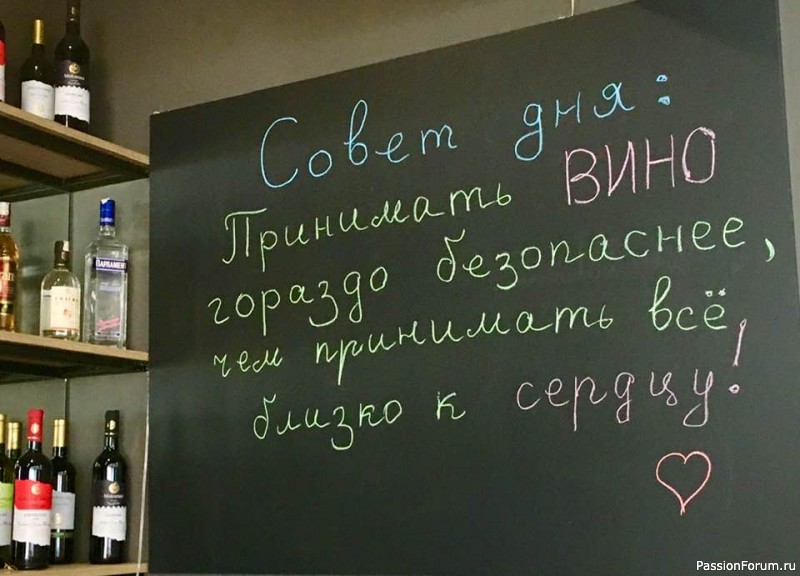 Совет дня:
Принимать ВИНО
гораздо безопаснее,
чем принимать всё
близко к сердцу!
ПАРЛАМЕНТ
PassionForum.ru